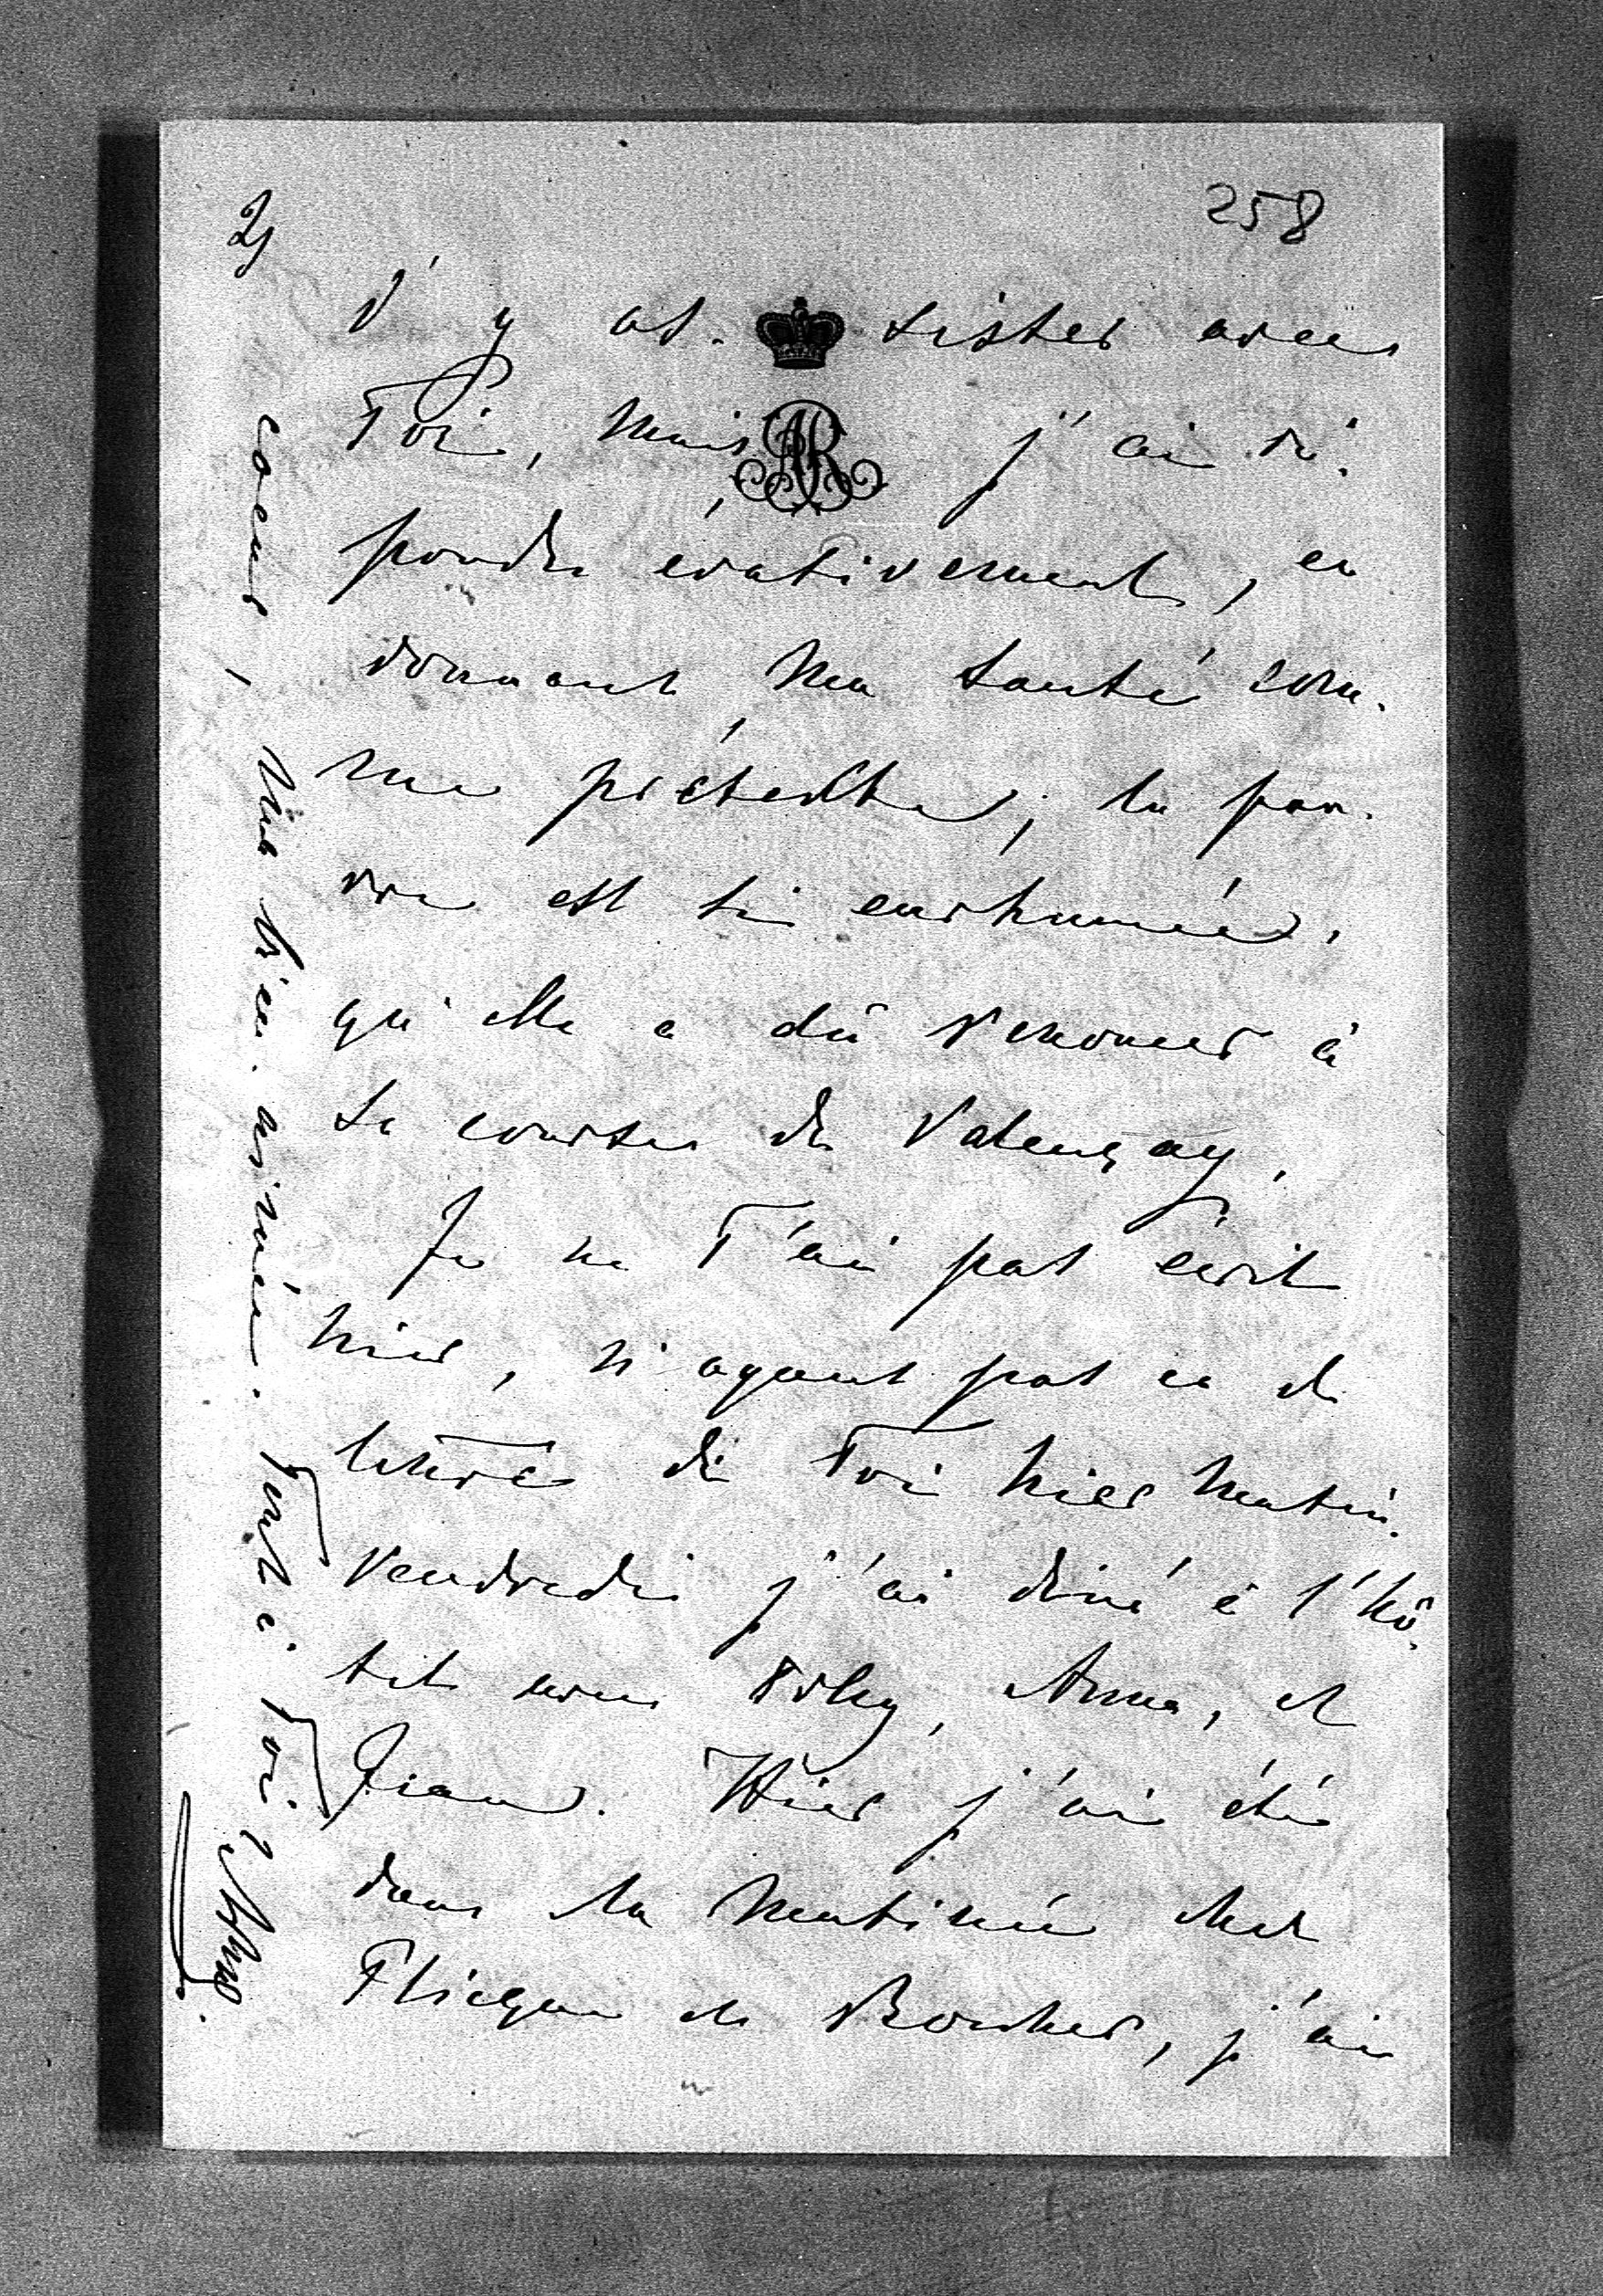 258
2)
d'y as-sister avec
Toi, mais j'ai ré-
pondu évasivement, en
donnant ma santé com-
me prétexte; la pau-
vre est si enrhumée,
qu'elle a dû renoncer à
sa course de Valençay.
Je ne T'ai pas écrit
hier, n'ayant pas eu de
lettre de Toi hier matin.
Vendredi j'ai dîné à l'hô-
tel avec Anna, et
Jean. Hier j'ai été
dans la matinée chez
de Boucher, j'ai
coeur, ma bien aimée. Tout à Toi